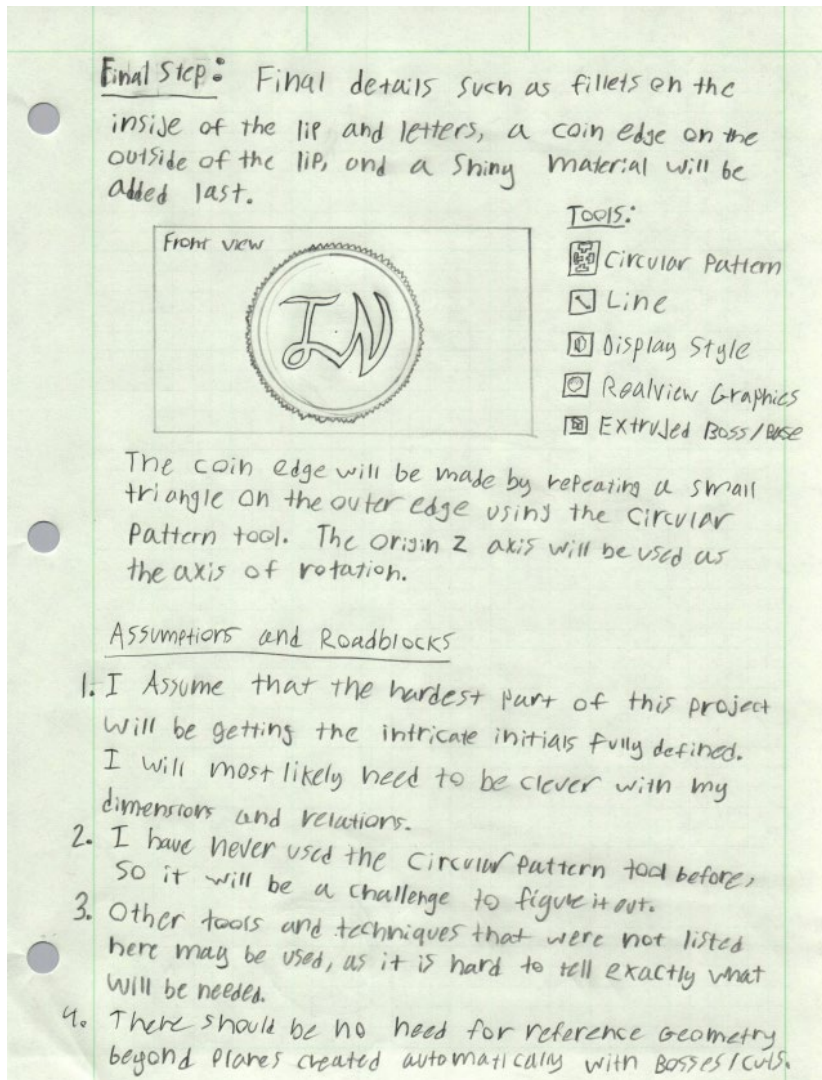 Final Step: Final details such as fillets on the
inside of the lip and letters, a coin edge on the
outside of the lip, and a shiny material will be
added last.
Front view
IN
Tools:
Circular Pattern
Line
Display Style
Realview Graphics
Extruded Boss/Base
The coin edge will be made by repeating a small
triangle on the outer edge using the Circular
Pattern tool. The origin Z axis will be used as
the axis of rotation.
Assumptions and Roadblocks
1. I Assume that the hardest part of this project
will be getting the intricate initials fully defined.
I will most likely need to be clever with my
dimensions and relations.
2. I have never used the Circular Pattern tool before,
so it will be a challenge to figure it out.
3. Other tools and techniques that were not listed
here may be used, as it is hard to tell exactly what
will be needed.
4. There should be no need for reference Geometry
beyond Planes created automatically with Bosses/Cuts.